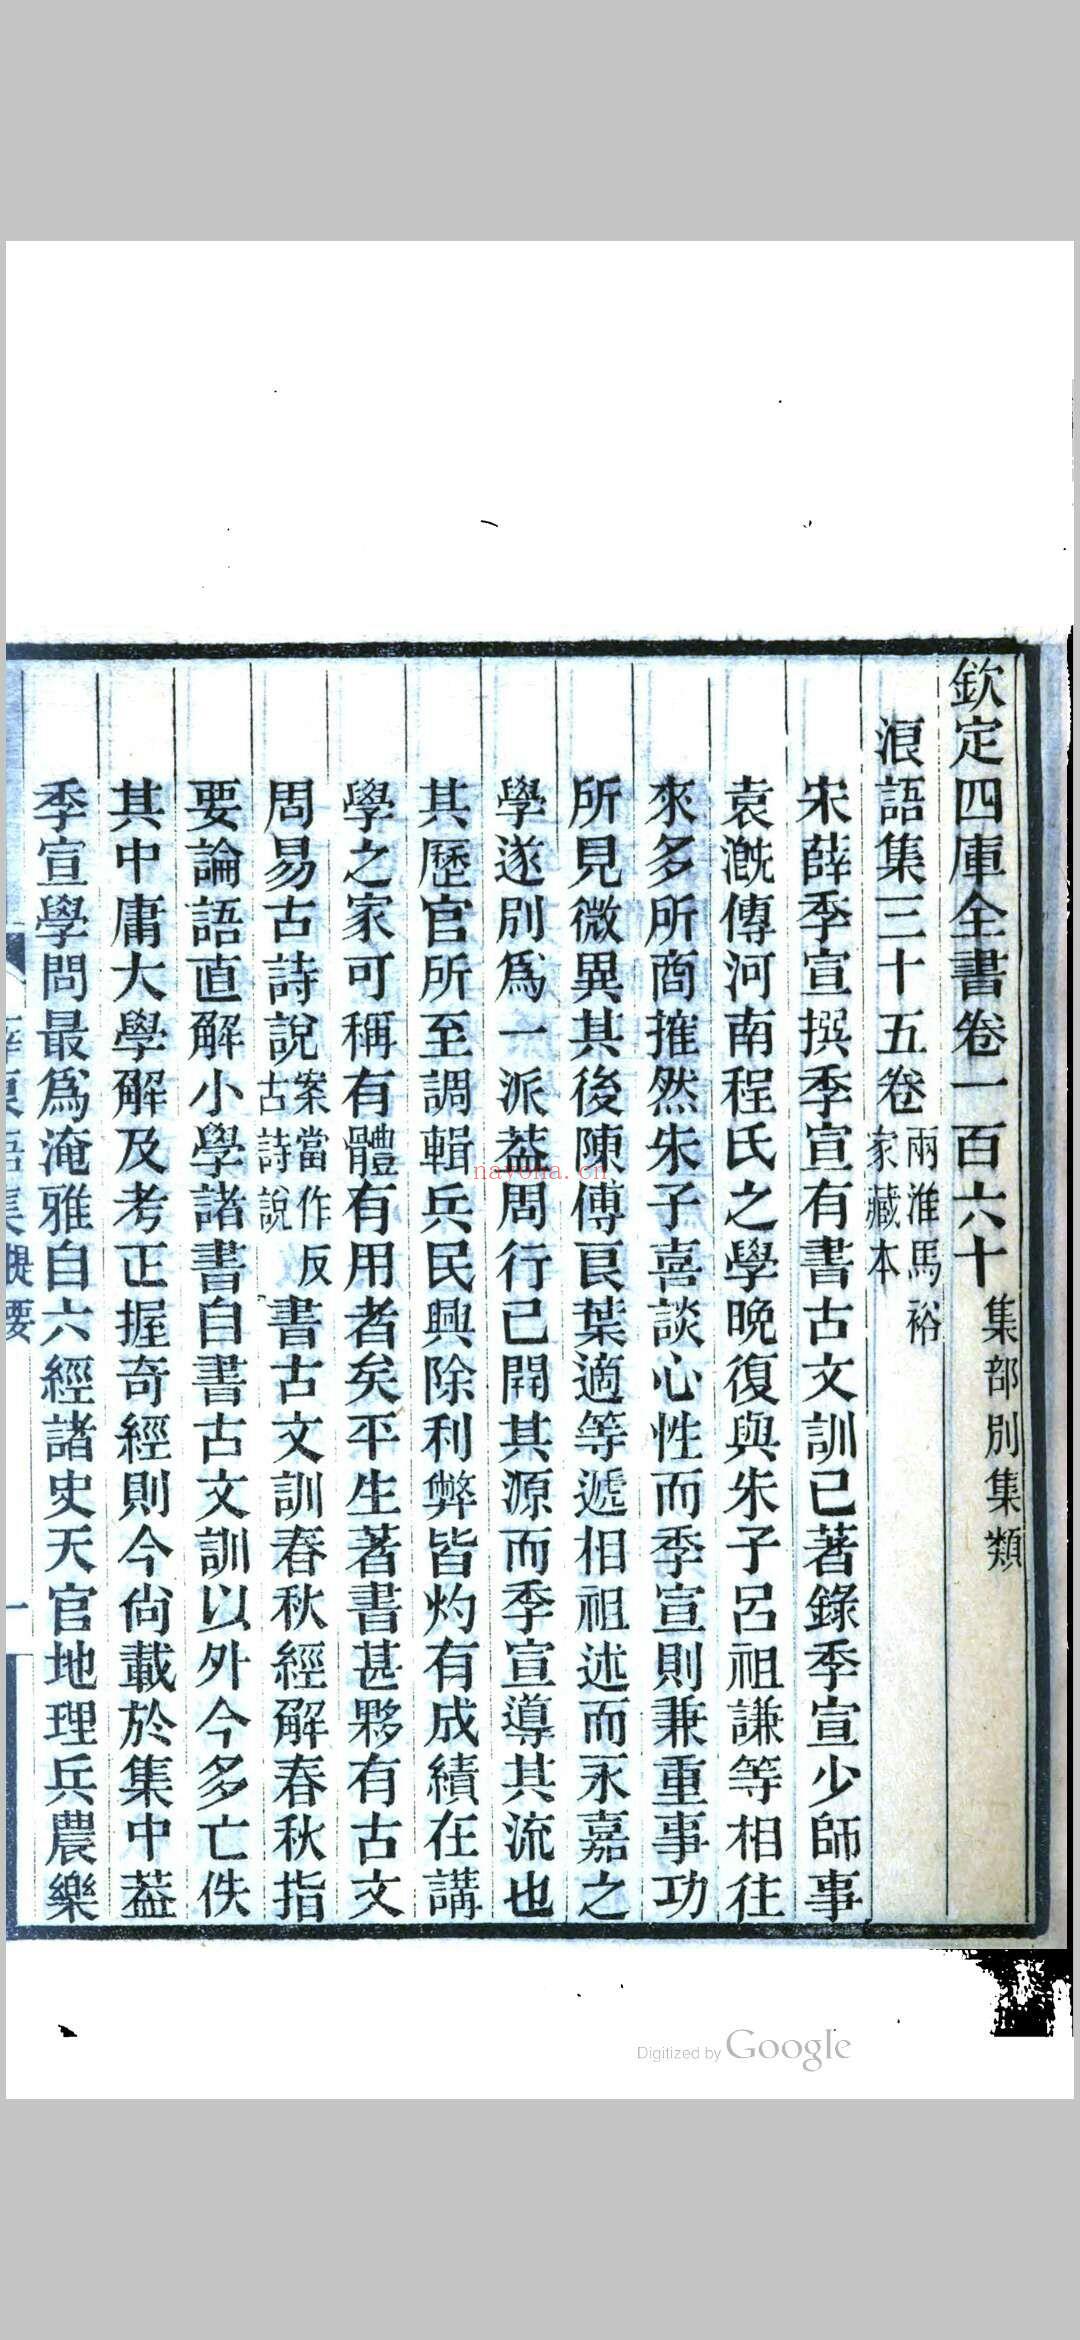 欽定四庫全書卷一百六十 集部別集類
浪語集三十五卷 兩淮馬裕家藏本
宋薛季宣撰季宣有書古文訓已著錄季宣少師事
袁漑傳河南程氏之學晚復與朱子呂祖謙等相往
來多所商搉然朱子喜談心性而季宣則兼重事功
所見微異其後陳傅良葉適等遞相祖述而永嘉之
學遂別爲一派葢周行己開其源而季宣導其流也
其歷官所至調輯兵民興除利弊皆灼有成績在講
學之家可稱有體有用者矣平生著書甚夥有古文
周易古詩說 案當作反古詩說 書古文訓春秋經解春秋指
要論語直解小學諸書自書古文訓以外今多亡佚
其中庸大學解及考正握奇經則今尙載於集中葢
季宣學問最爲淹雅自六經諸史天官地理兵農樂
nayona.cn
Digitized by Google